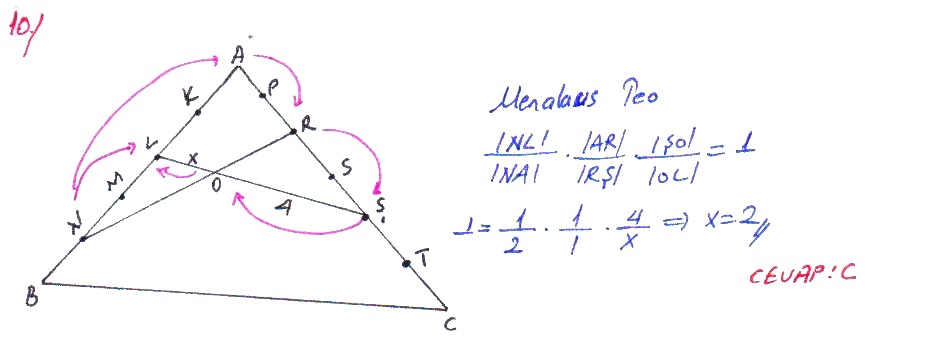 10)
A
K
P
L
R
x
M
O
S
4
Ş
N
T
B
C
Menalaus Teo
|NL| / |NA| · |AR| / |RŞ| · |ŞO| / |OL| = 1
1 = 1/2 · 1/1 · 4/x ⇒ x = 2//
CEVAP: C